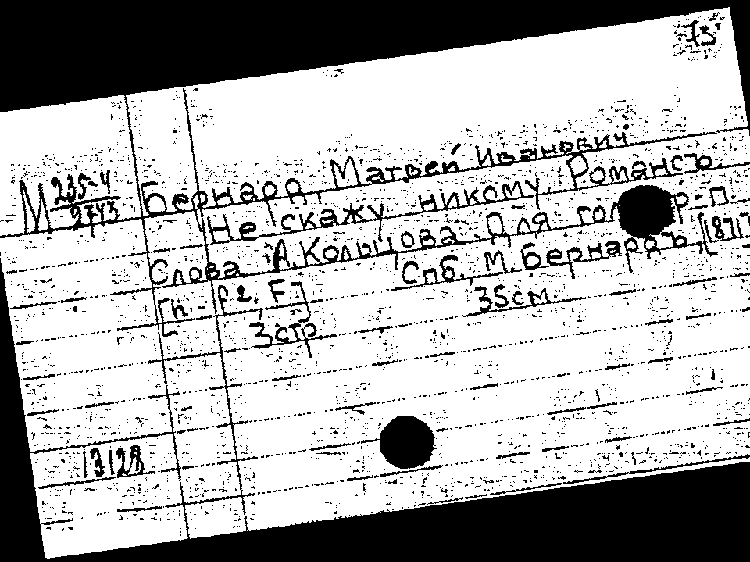 13
М 235-4
2743
Бернард, Матвей Иванович
Не скажу никому. Романсъ.
Слова А. Кольцова. Для р-п.
[h - f2, F] Спб, М. Бернардъ,
3стр 35см.
13128